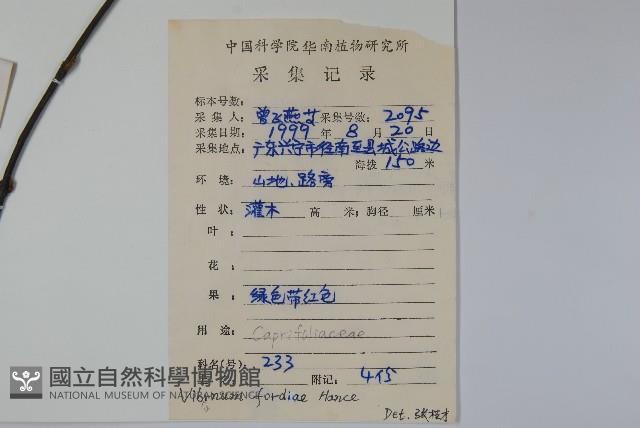 中国科学院华南植物研究所
采集记录
标本号数:
采集人: 曾飞燕艾 采集号数: 2095
采集日期: 1999 年 8 月 20 日
采集地点: 广东兴宁市径南至县城公路边
海拔 150 米
环境: 山地、路旁
性状: 灌木 高 米; 胸径 厘米
叶:
花:
果: 绿色带红色
用途: Caprifoliaceae
科名(号) 233
附记: 4份
國立自然科學博物館
NATIONAL MUSEUM OF NATURAL SCIENCE
Vibrnum fordiae Hance
Det. 张桂才